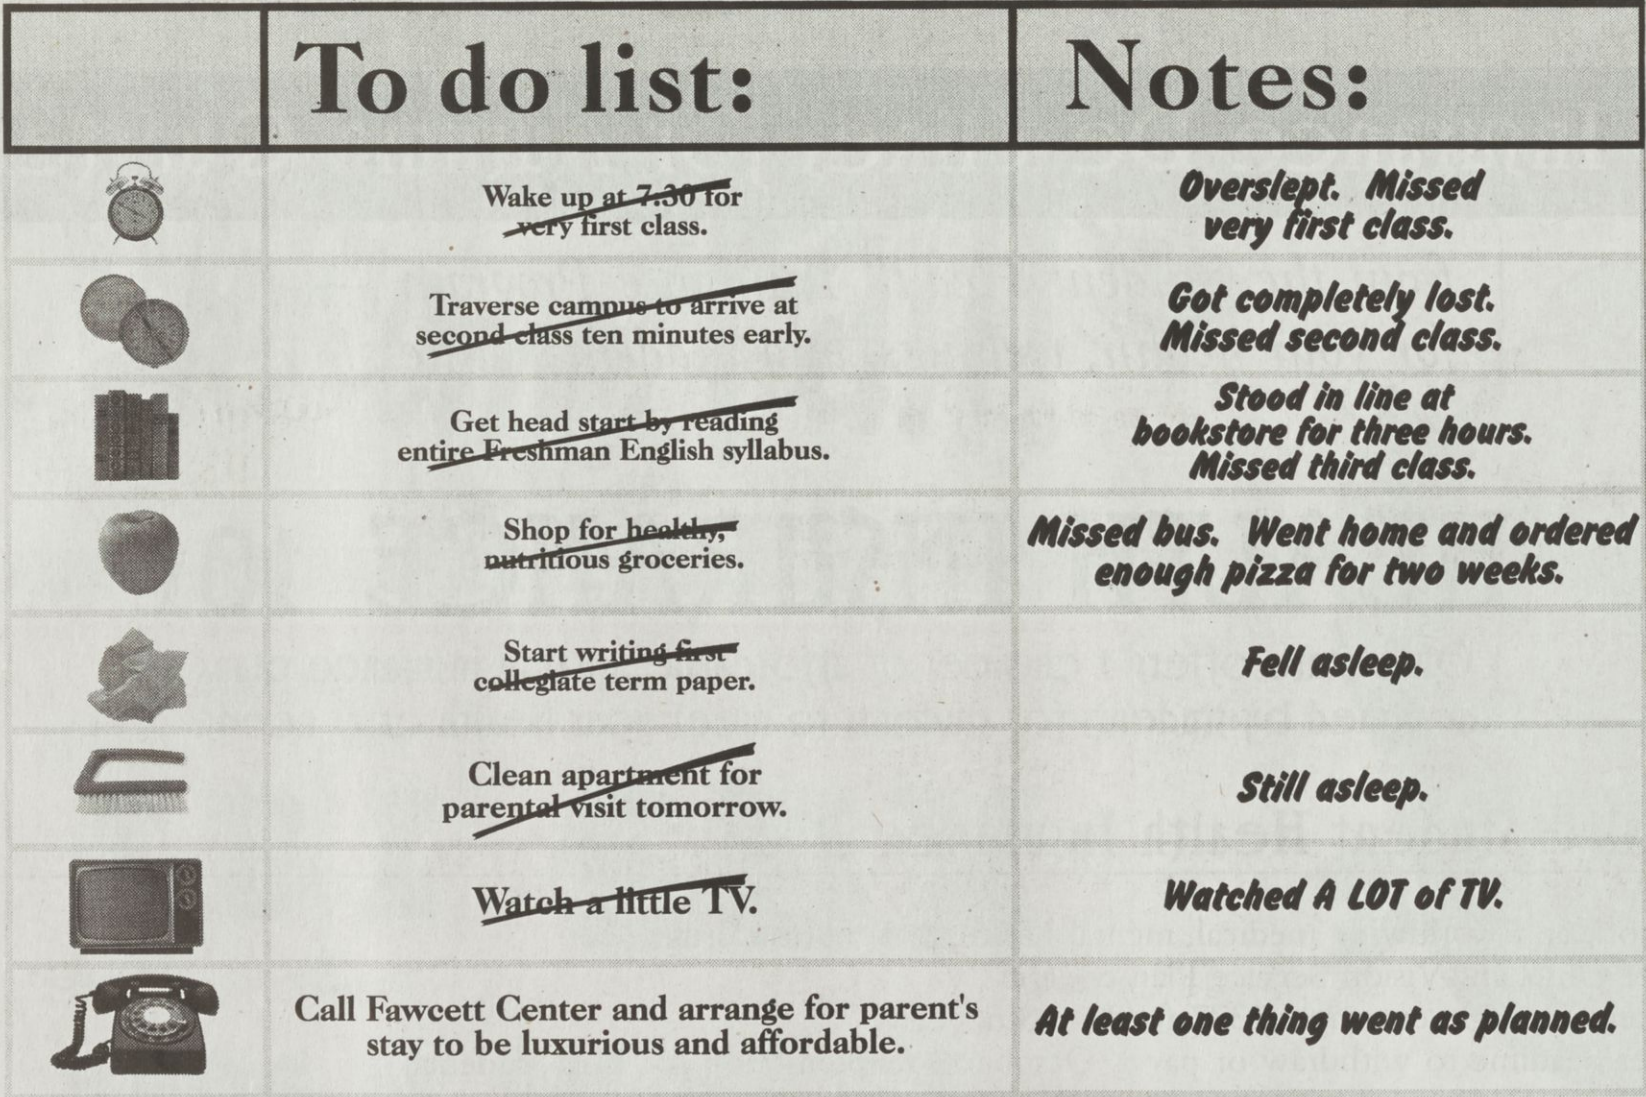 To do list:
Notes:
Wake up at 7:30 for
very first class.
Overslept. Missed
very first class.
Traverse campus to arrive at
second class ten minutes early.
Got completely lost.
Missed second class.
Get head start by reading
entire Freshman English syllabus.
Stood in line at
bookstore for three hours.
Missed third class.
Shop for healthy,
nutritious groceries.
Missed bus. Went home and ordered
enough pizza for two weeks.
Start writing first
collegiate term paper.
Fell asleep.
Clean apartment for
parental visit tomorrow.
Still asleep.
Watch a little TV.
Watched A LOT of TV.
Call Fawcett Center and arrange for parent's
stay to be luxurious and affordable.
At least one thing went as planned.